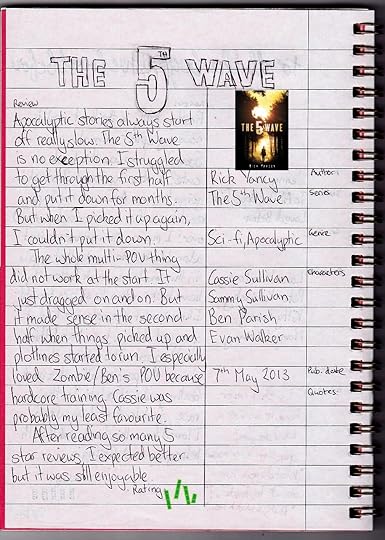 THE 5TH WAVE
Review
Apocalyptic stories always start
off really slow. The 5th Wave
is no exception. I struggled
to get through the first half
and put it down for months.
But when I picked it up again,
I couldn't put it down.
The whole multi-POV thing
did not work at the start. It
just dragged on and on. But
it made sense in the second
half when things picked up and
plotlines started to run. I especially
loved Zombie/Ben's POV because
hardcore training. Cassie was
probably my least favourite.
After reading so many 5
star reviews, I expected better.
but it was still enjoyable.
Rating
THE 5 WAVE
RICK YANCEY
Rick Yancy
Author
The 5th Wave
Series
Sci-fi, Apocalyptic
Genre
Characters
Cassie Sullivan
Sammy Sullivan
Ben Parish
Evan Walker
7th May 2013
Pub. date
Quotes